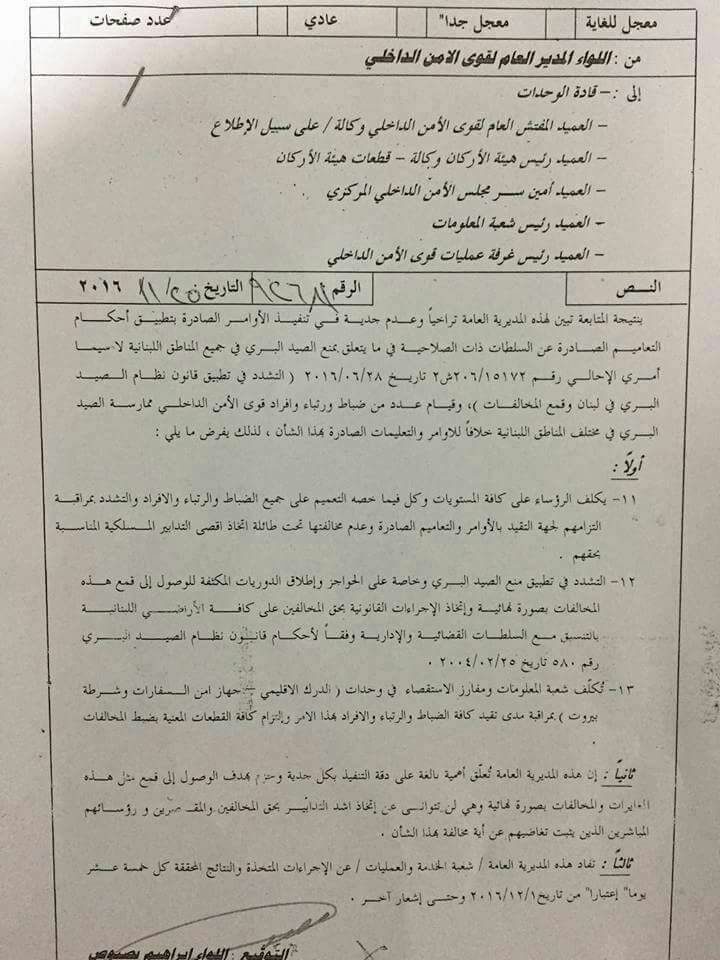 معجل للغاية معجل جدا" عادي عدد صفحات
من : اللواء المدير العام لقوى الامن الداخلي
إلى : – قادة الوحدات
– العميد المفتش العام لقوى الأمن الداخلي وكالة / على سبيل الإطلاع
– العميد رئيس هيئة الأركان وكالة – قطعات هيئة الأركان
– العميد أمين سر مجلس الأمن الداخلي المركزي
– العميد رئيس شعبة المعلومات
– العميد رئيس غرفة عمليات قوى الأمن الداخلي
النص الرقم التاريخ ١١/٢٥ ٢٠١٦
بنتيجة المتابعة تبين لهذه المديرية العامة تراخياً وعدم جدية في تنفيذ الأوامر الصادرة بتطبيق أحكام
التعاميم الصادرة عن السلطات ذات الصلاحية في ما يتعلق بمنع الصيد البري في جميع المناطق اللبنانية لا سيما
أمري الإحالي رقم ٢٠٦/١٥١٧٢ش٢ تاريخ ٢٠١٦/٠٦/٢٨ ( التشدد في تطبيق قانون نظام الصيد
البري في لبنان وقمع المخالفات )، وقيام عدد من ضباط ورتباء وافراد قوى الأمن الداخلي ممارسة الصيد
البري في مختلف المناطق اللبنانية خلافاً للاوامر والتعليمات الصادرة بهذا الشأن ، لذلك يفرض ما يلي :
أولاً :
١١– يكلف الرؤساء على كافة المستويات وكل فيما خصه التعميم على جميع الضباط والرتباء والافراد والتشدد بمراقبة
التزامهم لجهة التقيد بالأوامر والتعاميم الصادرة وعدم مخالفتها تحت طائلة اتخاذ اقصى التدابير المسلكية المناسبة
بحقهم .
١٢– التشدد في تطبيق منع الصيد البري وخاصة على الحواجز وإطلاق الدوريات المكثفة للوصول إلى قمع هذه
المخالفات بصورة نهائية وإتخاذ الإجراءات القانونية بحق المخالفين على كافة الأراضي اللبنانية
بالتنسيق مع السلطات القضائية والإدارية وفقاً لأحكام قانون نظام الصيد البري
رقم ٥٨٠ تاريخ ٢٠٠٤/٠٢/٢٥ .
١٣– تُكلّف شعبة المعلومات ومفارز الاستقصاء في وحدات ( الدرك الاقليمي – جهاز امن السفارات وشرطة
بيروت ) بمراقبة مدى تقيد كافة الضباط والرتباء والافراد بهذا الامر وإلتزام كافة القطعات المعنية بضبط المخالفات
.
ثانياً : إن هذه المديرية العامة تُعلّق أهمية بالغة على دقة التنفيذ بكل جدية وحزم بهدف الوصول إلى قمع مثل هذه
والمخالفات بصورة نهائية وهي لن تتوانى عن إتخاذ اشد التدابير بحق المخالفين والمقصرين و رؤسائهم
المباشرين الذين يثبت تغاضيهم عن أية مخالفة بهذا الشأن .
ثالثاً : تفاد هذه المديرية العامة / شعبة الخدمة والعمليات / عن الإجراءات المتخذة والنتائج المحققة كل خمسة عشر
يوما" إعتبارا" من تاريخ ٢٠١٦/١٢/١ وحتى إشعار آخر .
التوقيع : اللواء ابراهيم بصبوص